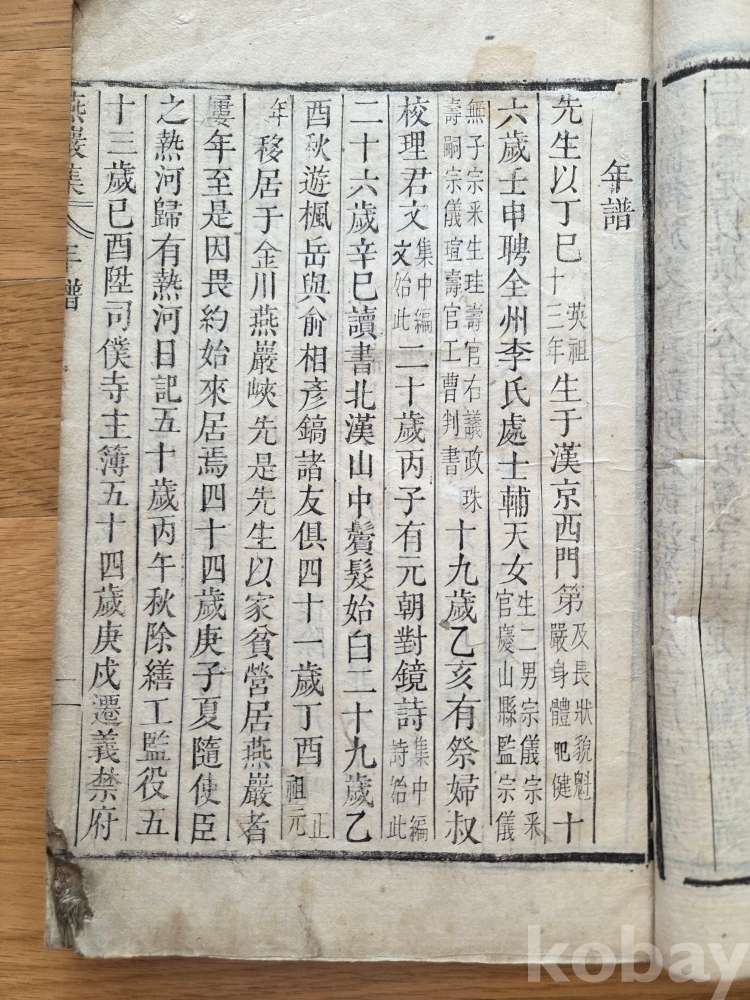 年譜
先生以丁巳英祖十三年生于漢京西門第及長狀貌魁嚴身體肥健十
六歲壬申聘全州李氏處士輔天女生二男宗儀宗采官慶山縣監宗儀
無子宗采生珪壽官右議政珠壽嗣宗儀瑄壽官工曹判書十九歲乙亥有祭婦叔
校理君文集中編文始此二十歲丙子有元朝對鏡詩集中編詩始此
二十六歲辛巳讀書北漢山中鬢髮始白二十九歲乙
酉秋遊楓岳與俞相彥鎬諸友俱四十一歲丁酉正祖元
年移居于金川燕巖峽先是先生以家貧營居燕巖者
屢年至是因畏約始來居焉四十四歲庚子夏隨使臣
之熱河歸有熱河日記五十歲丙午秋除繕工監役五
十三歲己酉陞司僕寺主簿五十四歲庚戌遷義禁府
燕巖集 年譜 一
kobay